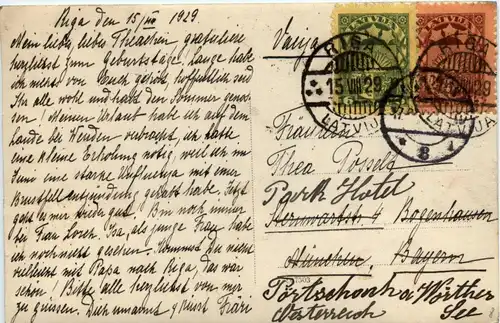 Riga den 15/VIII 1929
Mein liebes, liebes Theachen, gratuliere
herzlichst zum Geburtstage. Lange habe
ich nichts von Euch gehört, hoffentlich seid
Ihr alle wohl und habt den Sommer genos-
sen. Meinen Urlaub habe ich auf dem
Lande bei Wenden verbracht, ich hatte
eine kleine Erholung nötig, weil ich im
Juni eine starke
Brustfellentzündung gehabt habe. Jetzt
geht es mir wieder gut. Bin noch immer
bei Frau Lorch. Isa, als junge Frau, habe
ich noch nicht gesehen. Kommst Du nicht
vielleicht mit Papa nach Riga, das wär
schön! Bitte alle herzlichst von mir
zu grüssen. Dich umarmt u küsst
Latvija
LATVIJA
RIGA
15 VIII 29
LATVIJA
8
Fräulein
Thea Posselt
Park Hotel
4 Bogenhausen
München, Bayern
Pörtschach a/ Wörther
See
Österreich